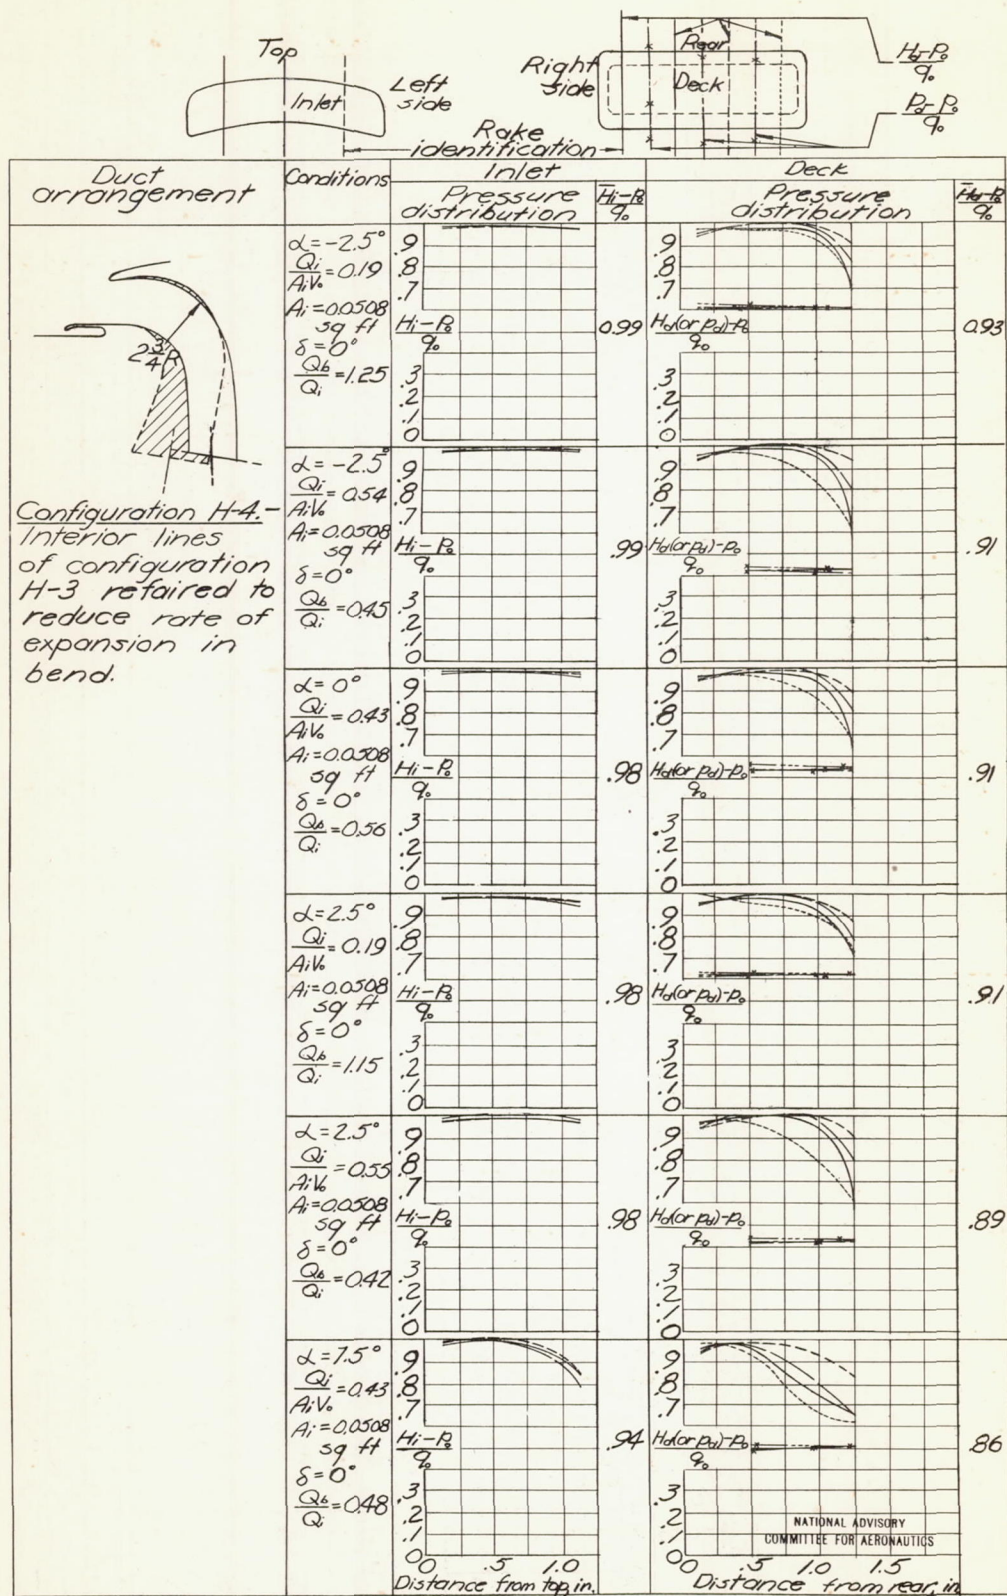 Top
Inlet
Left side
Right side
Rear
Deck
Hd-Po
qo
Pd-Po
qo
Rake identification
Duct arrangement
Conditions
Inlet
Pressure distribution
H̄i-Po
qo
Deck
Pressure distribution
H̄d-Po
qo
2 3/4 R
Configuration H-4.-
Interior lines
of configuration
H-3 refaired to
reduce rate of
expansion in
bend.
α = -2.5°
Qi/AiVo = 0.19
Ai = 0.0508 sq ft
δ = 0°
Qb/Qi = 1.25
.9
.8
.7
Hi-Po
qo
.3
.2
.1
0
0.99
.9
.8
.7
Hd(or pd)-po
qo
.3
.2
.1
0
0.93
α = -2.5°
Qi/AiVo = 0.54
Ai = 0.0508 sq ft
δ = 0°
Qb/Qi = 0.45
.9
.8
.7
Hi-Po
qo
.3
.2
.1
0
.99
.9
.8
.7
Hd(or pd)-po
qo
.3
.2
.1
0
.91
α = 0°
Qi/AiVo = 0.43
Ai = 0.0508 sq ft
δ = 0°
Qb/Qi = 0.56
.9
.8
.7
Hi-Po
qo
.3
.2
.1
0
.98
.9
.8
.7
Hd(or pd)-po
qo
.3
.2
.1
0
.91
α = 2.5°
Qi/AiVo = 0.19
Ai = 0.0508 sq ft
δ = 0°
Qb/Qi = 1.15
.9
.8
.7
Hi-Po
qo
.3
.2
.1
0
.98
.9
.8
.7
Hd(or pd)-po
qo
.3
.2
.1
0
.91
α = 2.5°
Qi/AiVo = 0.55
Ai = 0.0508 sq ft
δ = 0°
Qb/Qi = 0.42
.9
.8
.7
Hi-Po
qo
.3
.2
.1
0
.98
.9
.8
.7
Hd(or pd)-po
qo
.3
.2
.1
0
.89
α = 7.5°
Qi/AiVo = 0.43
Ai = 0.0508 sq ft
δ = 0°
Qb/Qi = 0.48
.9
.8
.7
Hi-Po
qo
.3
.2
.1
0
.94
.9
.8
.7
Hd(or pd)-po
qo
.3
.2
.1
0
.86
NATIONAL ADVISORY
COMMITTEE FOR AERONAUTICS
0 .5 1.0
Distance from top, in.
0 .5 1.0 1.5
Distance from rear, in.